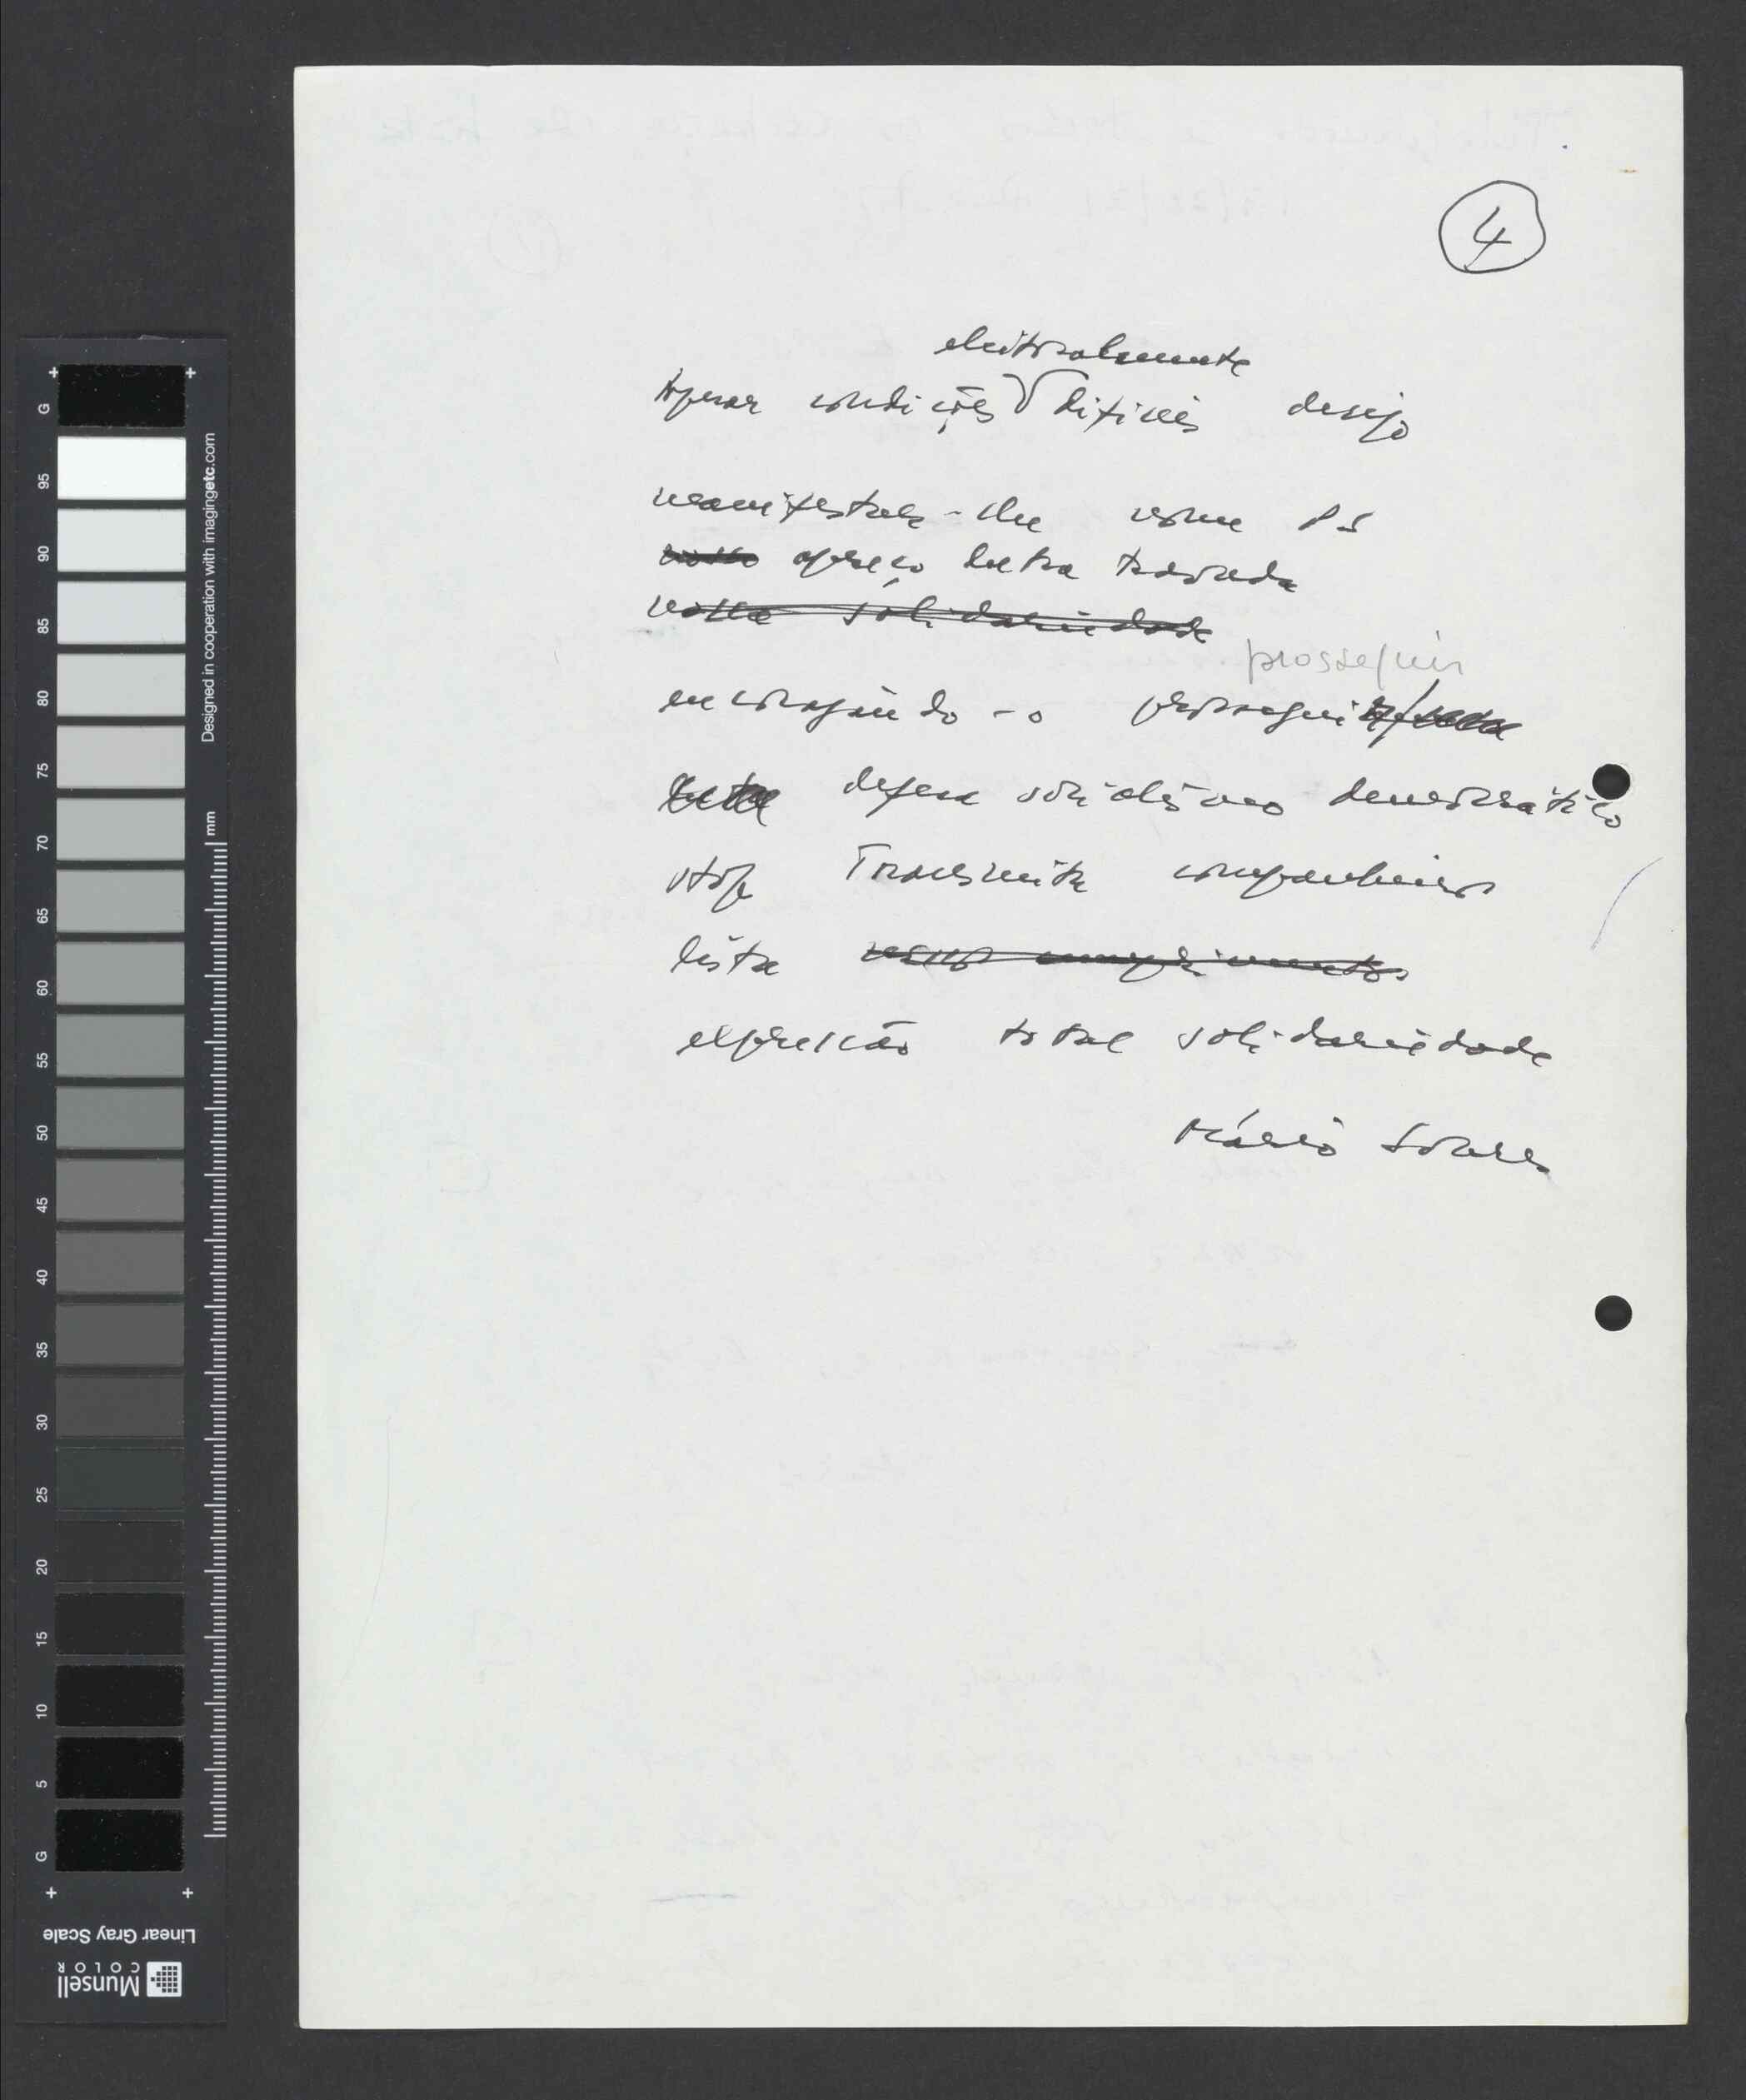 4
eleitoralmente
Apesar condições difíceis desejo
manifestar-lhe nome PS
nosso apreço luta travada
nossa solidariedade
prosseguir
encorajando-o prosseguir
luta defesa socialismo democrático
stop Transmita companheiros
lista nossos cumprimentos
expressão total solidariedade
Mário Soares
Designed in cooperation with imagingetc.com
mm
G 95 90 85 80 75 70 65 60 55 50 45 40 35 30 25 20 15 10 5 G
Linear Gray Scale
Munsell
COLOR